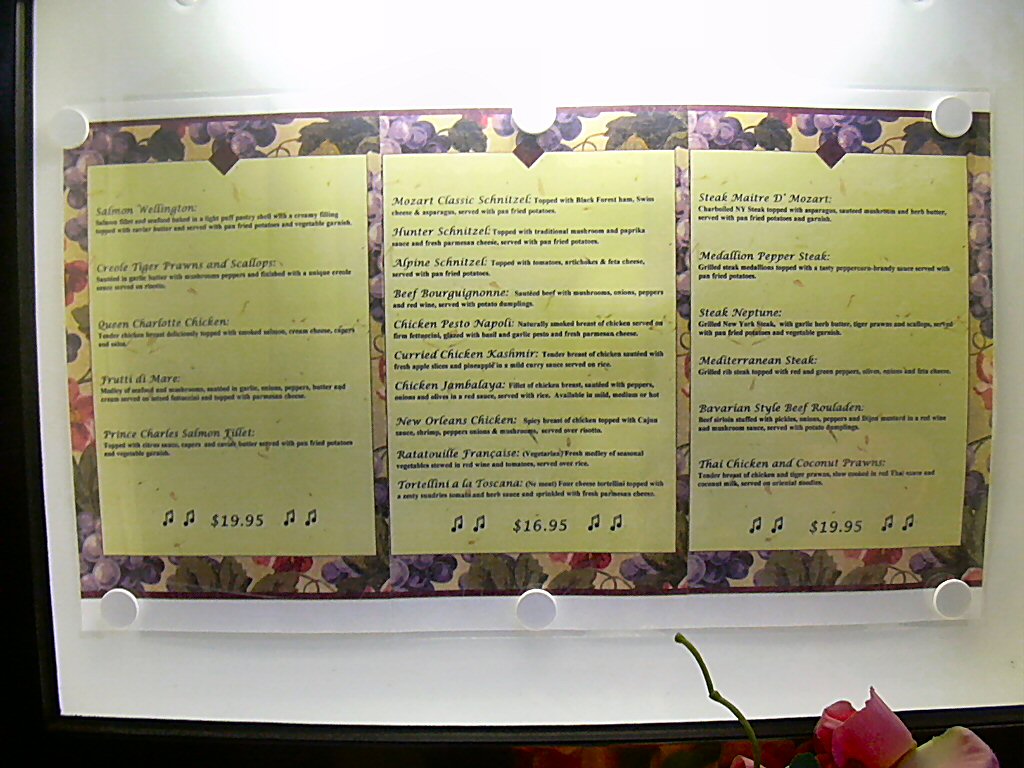 Salmon Wellington:
Salmon fillet and seafood baked in a light puff pastry shell with a creamy filling
topped with caviar butter and served with pan fried potatoes and vegetable garnish.
Creole Tiger Prawns and Scallops:
Sauteed in garlic butter with mushrooms peppers and finished with a unique creole
sauce served on risotto.
Queen Charlotte Chicken:
Tender chicken breast deliciously topped with smoked salmon, cream cheese, capers
and salsa.
Frutti di Mare:
Medley of seafood and mushrooms, sautéed in garlic, onions, peppers, butter and
cream served on mixed fettuccini and topped with parmesan cheese.
Prince Charles Salmon Fillet:
Topped with citrus sauce, capers and caviar butter served with pan fried potatoes
and vegetable garnish.
$19.95
Mozart Classic Schnitzel: Topped with Black Forest ham, Swiss
cheese & asparagus, served with pan fried potatoes.
Hunter Schnitzel: Topped with traditional mushroom and paprika
sauce and fresh parmesan cheese, served with pan fried potatoes.
Alpine Schnitzel: Topped with tomatoes, artichokes & feta cheese,
served with pan fried potatoes.
Beef Bourguignonne: Sautéed beef with mushrooms, onions, peppers
and red wine, served with potato dumplings.
Chicken Pesto Napoli: Naturally smoked breast of chicken served on
firm fettuccini, glazed with basil and garlic pesto and fresh parmesan cheese.
Curried Chicken Kashmir: Tender breast of chicken sautéed with
fresh apple slices and pineapple in a mild curry sauce served on rice.
Chicken Jambalaya: Fillet of chicken breast, sautéed with peppers,
onions and olives in a red sauce, served with rice. Available in mild, medium or hot
New Orleans Chicken: Spicy breast of chicken topped with Cajun
sauce, shrimp, peppers onions & mushrooms, served over risotto.
Ratatouille Française: (Vegetarian) Fresh medley of seasonal
vegetables stewed in red wine and tomatoes, served over rice.
Tortellini a la Toscana: (No meat) Four cheese tortellini topped with
a zesty sundries tomato and herb sauce and sprinkled with fresh parmesan cheese.
$16.95
Steak Maitre D' Mozart:
Charboiled NY Steak topped with asparagus, sauteed mushroom and herb butter,
served with pan fried potatoes and garnish.
Medallion Pepper Steak:
Grilled steak medallions topped with a tasty peppercorn-brandy sauce served with
pan fried potatoes.
Steak Neptune:
Grilled New York Steak, with garlic herb butter, tiger prawns and scallops, served
with pan fried potatoes and vegetable garnish.
Mediterranean Steak:
Grilled rib steak topped with red and green peppers, olives, onions and feta cheese.
Bavarian Style Beef Rouladen:
Beef sirloin stuffed with pickles, onions, peppers and Dijon mustard in a red wine
and mushroom sauce, served with potato dumplings.
Thai Chicken and Coconut Prawns:
Tender breast of chicken and tiger prawns, slow cooked in red Thai sauce and
coconut milk, served on oriental noodles.
$19.95